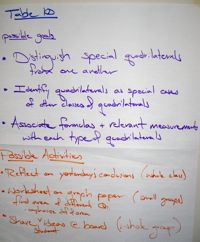 Table 10
possible goals
• Distinguish special quadrilaterals
from one another
• Identify quadrilaterals as special cases
of other classes of quadrilaterals
• Associate formulas + relevant measurements
with each type of quadrilaterals
Possible Activities
• Reflect on yesterday's conclusions (whole class)
• Worksheet on graph paper (small groups)
find area of different
• Share ideas @ board (whole group)